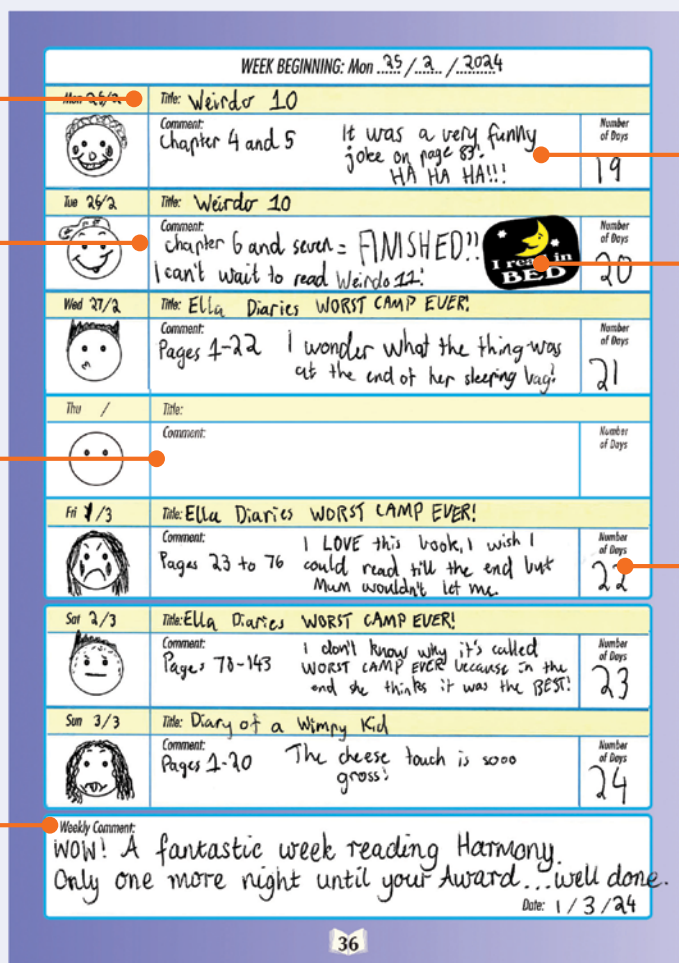 WEEK BEGINNING: Mon 25/2/2024
Mon 25/2 Title: Weirdo 10
Comment:
Chapter 4 and 5 It was a very funny
joke on page 83!
HA HA HA!!!
Number
of Days
19
Tue 26/2 Title: Weirdo 10
Comment:
chapter 6 and seven = FINISHED!!
I can't wait to read Weirdo 11!
I read in
BED
Number
of Days
20
Wed 27/2 Title: Ella Diaries WORST CAMP EVER!
Comment:
Pages 1-22 I wonder what the thing was
at the end of her sleeping bag!
Number
of Days
21
Thu / Title:
Comment:
Number
of Days
Fri 1/3 Title: Ella Diaries WORST CAMP EVER!
Comment:
Pages 23 to 76 I LOVE this book, I wish I
could read till the end but
Mum wouldn't let me.
Number
of Days
22
Sat 2/3 Title: Ella Diaries WORST CAMP EVER!
Comment:
Pages 78-143 I don't know why it's called
WORST CAMP EVER because in the
end she thinks it was the BEST!
Number
of Days
23
Sun 3/3 Title: Diary of a Wimpy Kid
Comment:
Pages 1-20 The cheese touch is sooo
gross!
Number
of Days
24
Weekly Comment:
WOW! A fantastic week reading Harmony.
Only one more night until your Award...well done.
Date: 1/3/24
36